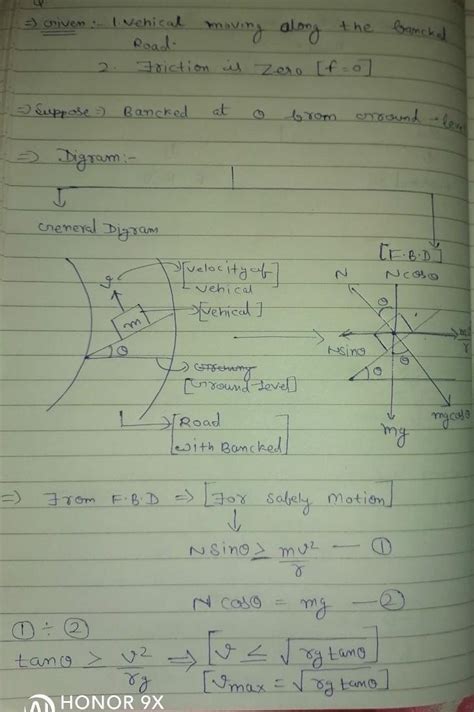 Q
⇒ Given :- 1. Vehical moving along the Bancked
Road.
2. Friction is Zero [f=0]
⇒ Suppose ⇒ Bancked at θ from Ground-level
⇒ Digram:-
General Digram
[F.B.D]
v
[velocity of vehical]
m
[vehical]
θ
[Ground-level]
[Road with Bancked]
N
Ncosθ
θ
Nsinθ
mv²/r
θ
θ
mg
mgcosθ
⇒ From F.B.D ⇒ [For safely motion]
Nsinθ ≥ mv²/r — ①
N cosθ = mg — ②
① ÷ ②
tanθ > v²/rg ⇒ [v ≤ √rg tanθ]
[vmax = √rg tanθ]
HONOR 9X